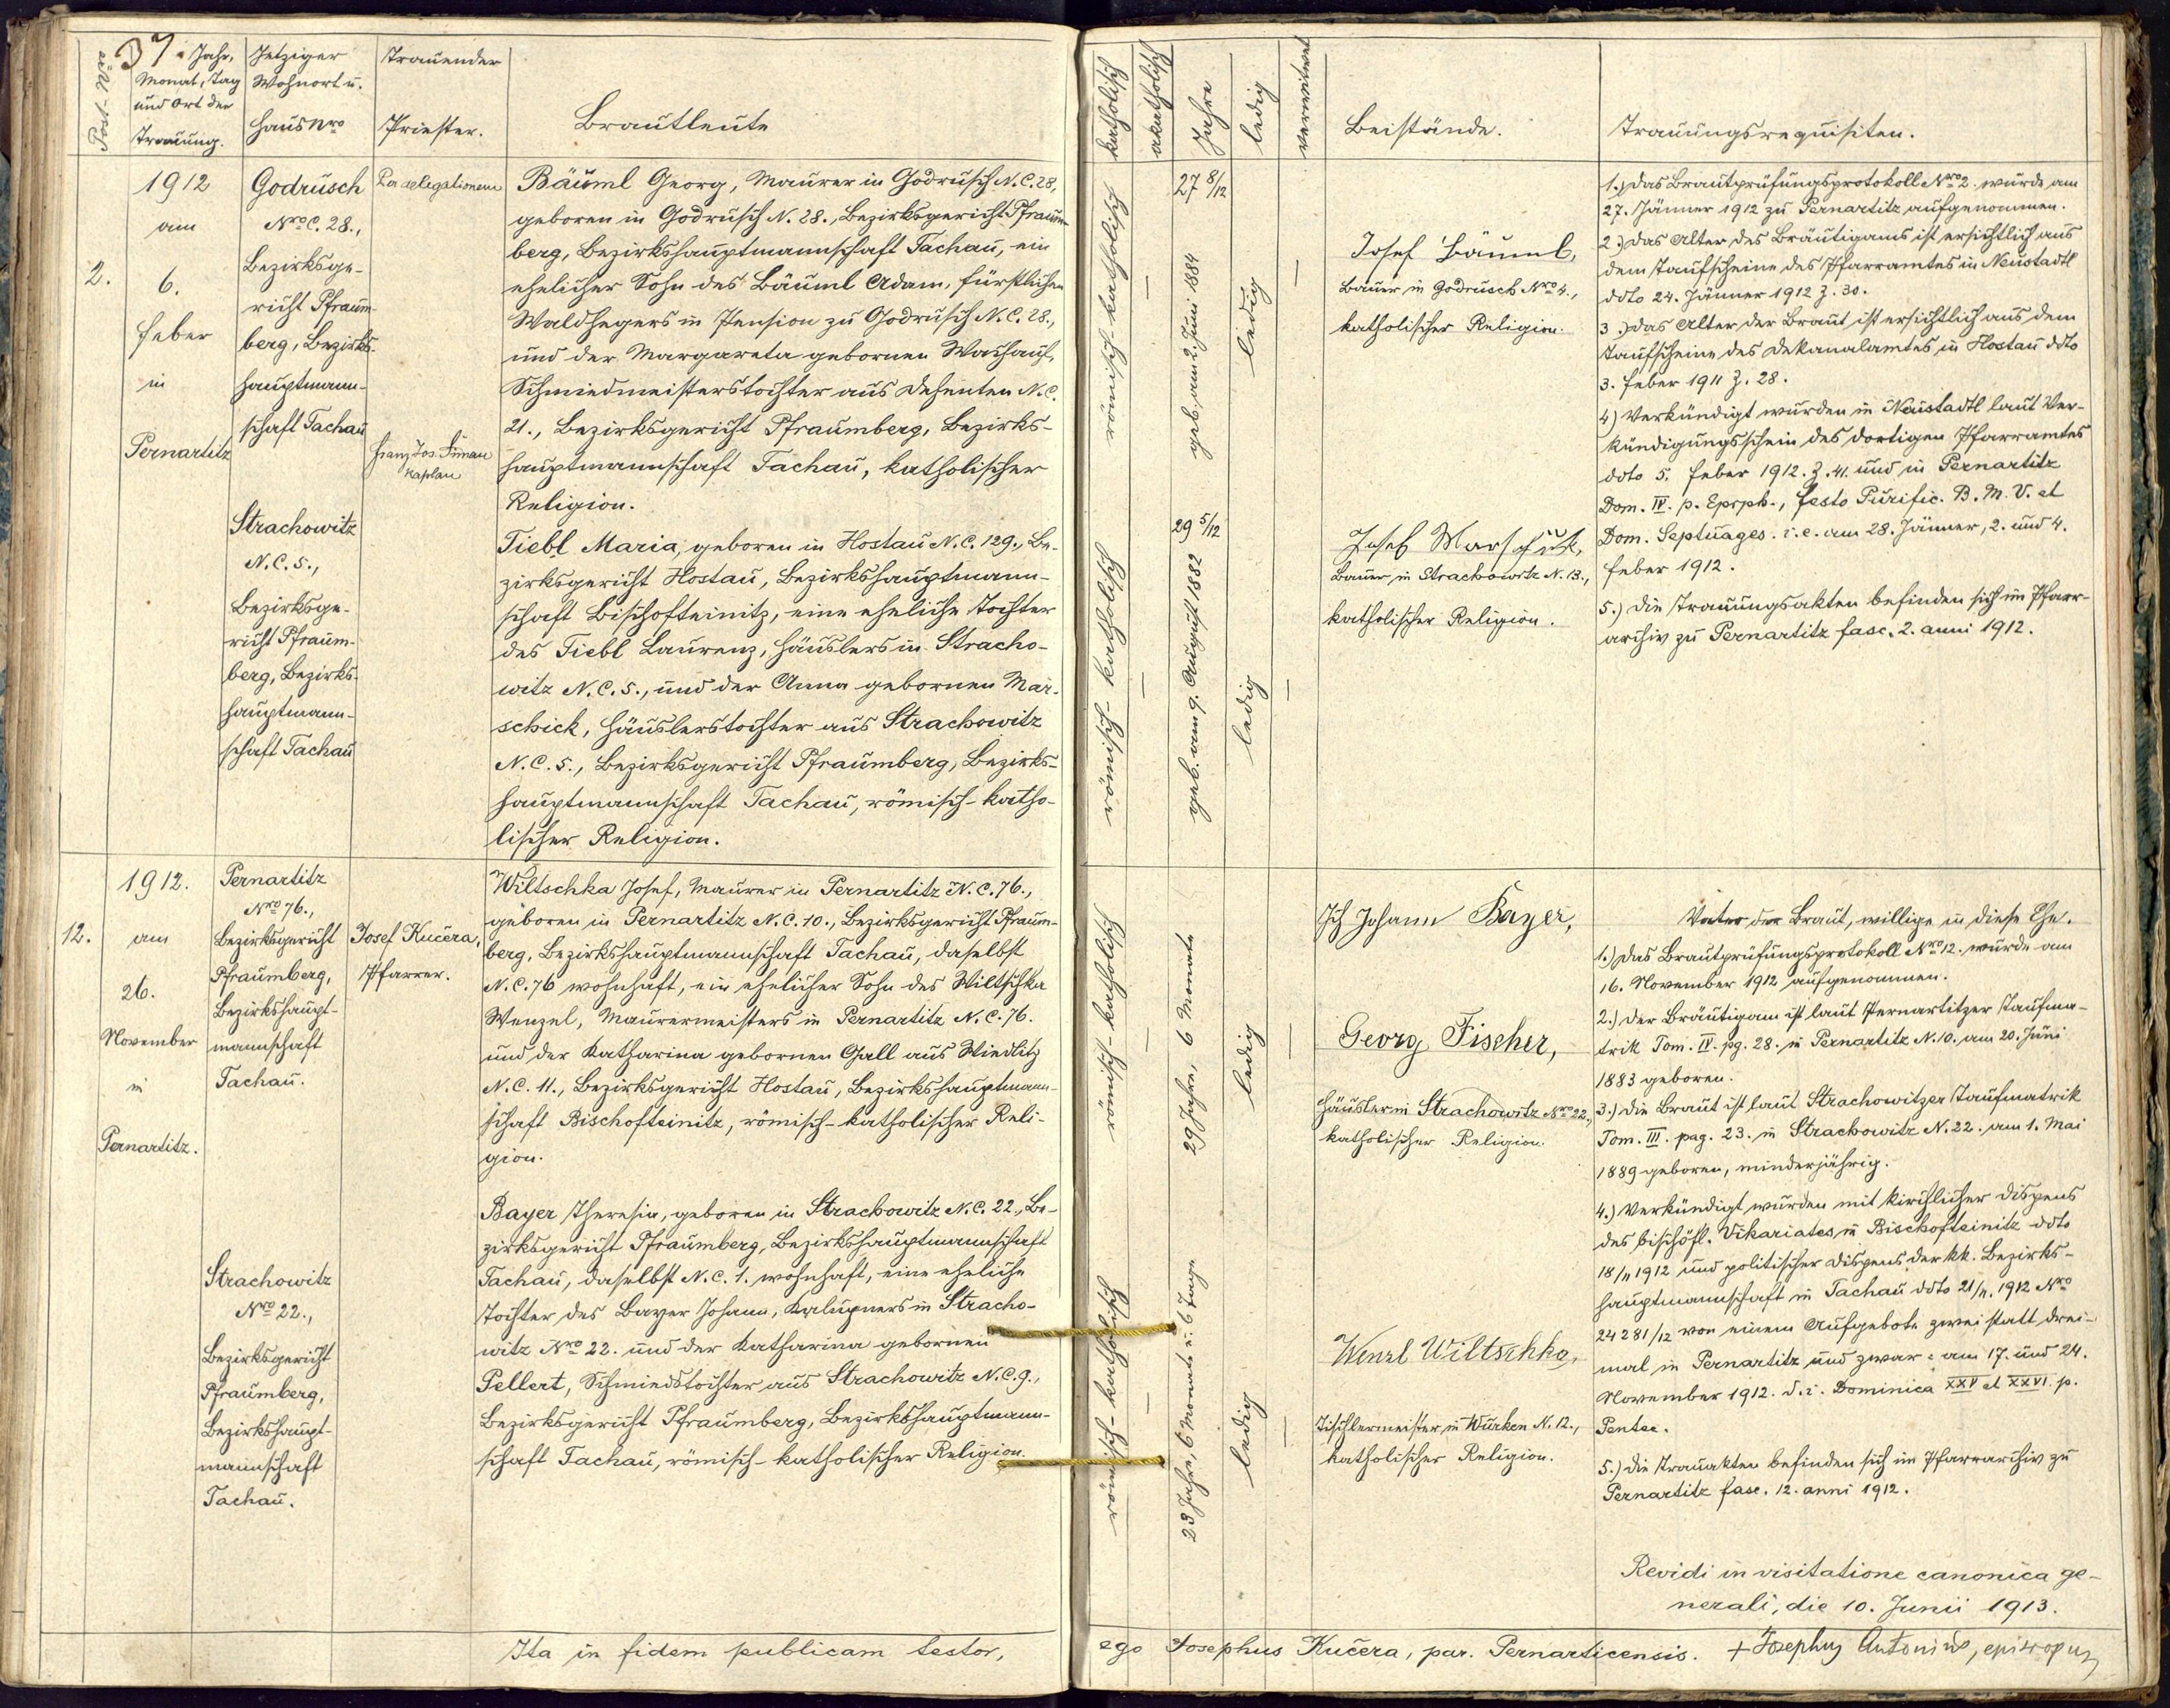 37.
Post-Nro
Jahr,
Monat, Tag
und Ort der
Trauung.
Jetziger
Wohnort u.
Haus Nro
Trauender
Priester.
Brautleute
katholisch
akatholisch
Jahre
ledig
verwitwet
Beistände.
Trauungsrequisiten.
2.
1912
am
6.
Feber
in
Pernartitz
Godrusch
Nro C. 28.,
Bezirksge-
richt Pfraum-
berg, Bezirks-
hauptmann-
schaft Tachau
Strachowitz
N. C. 5.,
Bezirksge-
richt Pfraum-
berg, Bezirks-
hauptmann-
schaft Tachau
Per delegationem
Franz Jos.
Kaplan
Bäuml Georg, Maurer in Godrusch N. C. 28,
geboren in Godrusch N. 28., Bezirksgericht Pfraum-
berg, Bezirkshauptmannschaft Tachau, ein
ehelicher Sohn des Bäuml Adam, fürstlichen
Waldhegers in Pension zu Godrusch N. C. 28.,
und der Margareta gebornen
Schmiedmeisterstochter aus Dehenten N. C.
21., Bezirksgericht Pfraumberg, Bezirks-
hauptmannschaft Tachau, katholischer
Religion.
Tiebl Maria, geboren in Hostau N. C. 129., Be-
zirksgericht Hostau, Bezirkshauptmann-
schaft Bischofteinitz, eine eheliche Tochter
des Tiebl Laurenz, Häuslers in Stracho-
witz N. C. 5., und der Anna gebornen Mar-
schick, Häuslerstochter aus Strachowitz
N. C. 5., Bezirksgericht Pfraumberg, Bezirks-
hauptmannschaft Tachau, römisch-katho-
lischer Religion.
römisch-katholisch
—
27 8/12
geb. am 2. Juni 1884
ledig
—
römisch-katholisch
—
29 5/12
geb. am 9. August 1882
ledig
—
Josef Bäuml,
Bauer in Godrusch Nro 4.,
katholischer Religion.
Josef Marschick,
Bauer in Strachowitz N. 13.,
katholischer Religion.
1.) Das Brautprüfungsprotokoll Nro 2. wurde am
27. Jänner 1912 zu Pernartitz aufgenommen.
2.) Das Alter des Bräutigams ist ersichtlich aus
dem Taufscheine des Pfarramtes in Neustadtl
ddto 24. Jänner 1912 Z. 30.
3.) Das Alter der Braut ist ersichtlich aus dem
Taufscheine des Dekanalamtes in Hostau ddto
3. Feber 1911 Z. 28.
4.) Verkündigt wurden in Neustadtl laut Ver-
kündigungsschein des dortigen Pfarramtes
ddto 5. Feber 1912. Z. 41. und in Pernartitz
Dom. IV. p. Epiph., festo Purific. B. M. V. et
Dom. Septuages. i. e. am 28. Jänner, 2. und 4.
Feber 1912.
5.) Die Trauungsakten befinden sich im Pfarr-
archiv zu Pernartitz fasc. 2. anni 1912.
12.
1912.
am
26.
November
in
Pernartitz.
Pernartitz
Nro 76.,
Bezirksgericht
Pfraumberg,
Bezirkshaupt-
mannschaft
Tachau.
Strachowitz
Nro 22.,
Bezirksgericht
Pfraumberg,
Bezirkshaupt-
mannschaft
Tachau.
Josef Kučera,
Pfarrer.
Wiltschka Josef, Maurer in Pernartitz N. C. 76.,
geboren in Pernartitz N. C. 10., Bezirksgericht Pfraum-
berg, Bezirkshauptmannschaft Tachau, daselbst
N. C. 76 wohnhaft, ein ehelicher Sohn des Wiltschka
Wenzel, Maurermeisters in Pernartitz N. C. 76.
und der Katharina gebornen Gall aus Miedlitz
N. C. 11., Bezirksgericht Hostau, Bezirkshauptmann-
schaft Bischofteinitz, römisch-katholischer Reli-
gion.
Bayer Theresia, geboren in Strachowitz N. C. 22., Be-
zirksgericht Pfraumberg, Bezirkshauptmannschaft
Tachau, daselbst N. C. 1. wohnhaft, eine eheliche
Tochter des Bayer Johann, Kalupners in Stracho-
witz Nro 22. und der Katharina gebornen
Pellert, Schmiedstochter aus Strachowitz N. C. 9.,
Bezirksgericht Pfraumberg, Bezirkshauptmann-
schaft Tachau, römisch-katholischer Religion.
römisch-katholisch
—
29 Jahre, 6 Monate
ledig
—
römisch-katholisch
—
23 Jahre, 6 Monate u. 6 Tage
ledig
—
Ich Johann Bayer,
Georg Fischer,
Häusler in Strachowitz Nro 22.,
katholischer Religion.
Wenzl Wiltschka,
Tischlermeister in Wurken N. 12.,
katholischer Religion.
Vater der Braut, willige in diese Ehe.
1.) Das Brautprüfungsprotokoll Nro 12. wurde am
16. November 1912 aufgenommen.
2.) Der Bräutigam ist laut Pernartitzer Taufma-
trik Tom. IV. pg. 28. in Pernartitz N. 10. am 20. Juni
1883 geboren.
3.) Die Braut ist laut Strachowitzer Taufmatrik
Tom. III. pag. 23. in Strachowitz N. 22. am 1. Mai
1889 geboren, minderjährig.
4.) Verkündigt wurden mit kirchlicher Dispens
des bischöfl. Vikariates in Bischofteinitz ddto
18/11 1912 und politischer Dispens der kk. Bezirks-
hauptmannschaft in Tachau ddto 21/11. 1912 Nro
24281/12 von einem Aufgebote zwei statt drei-
mal in Pernartitz und zwar: am 17. und 24.
November 1912. d. i. Dominica XXV et XXVI p.
Pentec.
5.) Die Trauakten befinden sich im Pfarrarchiv zu
Pernartitz fasc. 12. anni 1912.
Revidi in visitatione canonica ge-
nerali, die 10. Junii 1913.
Ita in fidem publicam testor, ego Josephus Kučera, par. Pernarticensis. + Josephus Antonius, episcopus